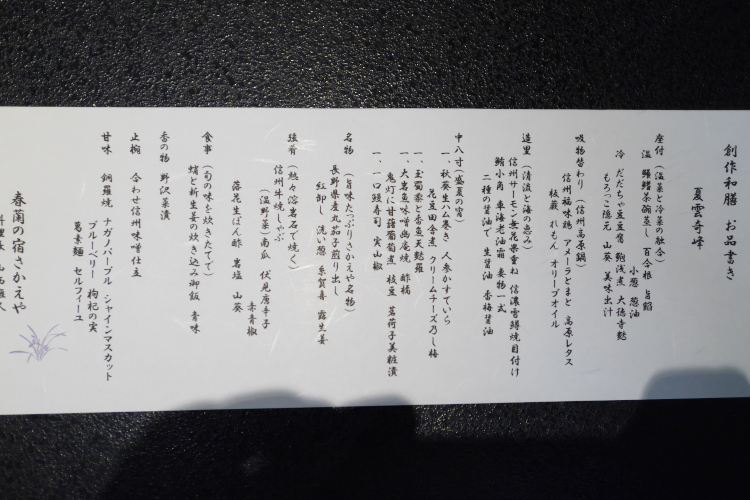 創作和膳 お品書き
夏雲奇峰
座付（温菜と冷菜の融合）
温 鱧鱈茶碗蒸し 百合根 旨餡
小葱 葱油
冷 だだちゃ豆豆腐 鮑浅煮 大徳寺麩
もろっこ隠元 山葵 美味出汁
吸物替わり（信州高原鍋）
信州福味鶏 アメーラとまと 高原レタス
板蕨 れもん オリーブオイル
造里（清流と海の恵み）
信州サーモン無花果重ね 信濃雪鱒焼目付け
鮪小角 車海老油霜 妻物一式
二種の醤油で 生醤油 香梅醤油
中八寸（盛夏の宵）
一、秋葵生ハム巻き 人参かすていら
花豆田舎煮 クリームチーズ乃し梅
一、玉蜀黍と香魚天麩羅
一、大岩魚味噌幽庵焼 酢橘
鬼灯に甘藷葡萄煮 枝豆 茗荷子美粧漬
一、一口鰻寿司 実山椒
名物（旨味たっぷりさかえや名物）
長野県産丸茄子煎り出し
紅卸し 洗い葱 糸賀喜 露生姜
強肴（熱々溶岩石で焼く）
信州牛焼しゃぶ
（温野菜）南瓜 伏見唐辛子
赤青椒
落花生ぽん酢 岩塩 山葵
食事（旬の味を炊きたてで）
蛸と新生姜の炊き込み御飯 青味
香の物 野沢菜漬
止椀 合わせ信州味噌仕立
甘味 銅羅焼 ナガノパープル シャインマスカット
ブルーベリー 枸杞の実
葛素麺 セルフィーユ
春蘭の宿さかえや